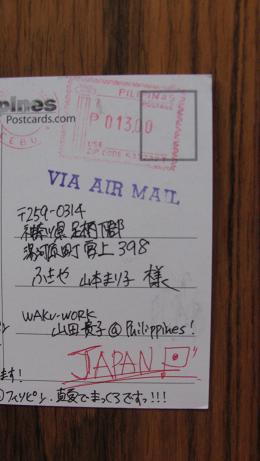 pines
Postcards.com
PILIPINAS
CEBU
P 013.00
ZIP CODE
VIA AIR MAIL
〒259-0314
神奈川県足柄下郡
湯河原町宮上398
ふきや 山本まり子 様
WAKU-WORK
山田貴子@Philippines!
JAPAN
ます!
フィリピン、真夏でまっくろですっ!!!